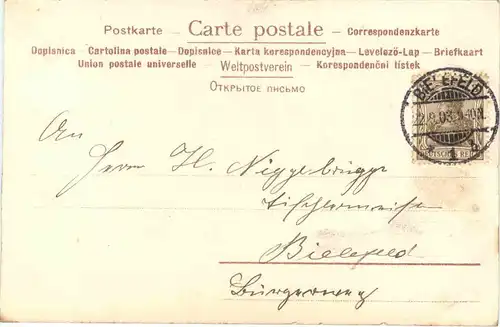 Postkarte – Carte postale – Correspondenzkarte
Dopisnica – Cartolina postale – Dopisnice – Karta korespondencyjna – Levelező-Lap – Briefkaart
Union postale universelle – Weltpostverein – Korespondenční listek
Открытое письмо
BIELEFELD
DEUTSCHES REICH
An
Herrn H. Niggebrügge
Tischlermeister
Bielefeld
Bürgerweg